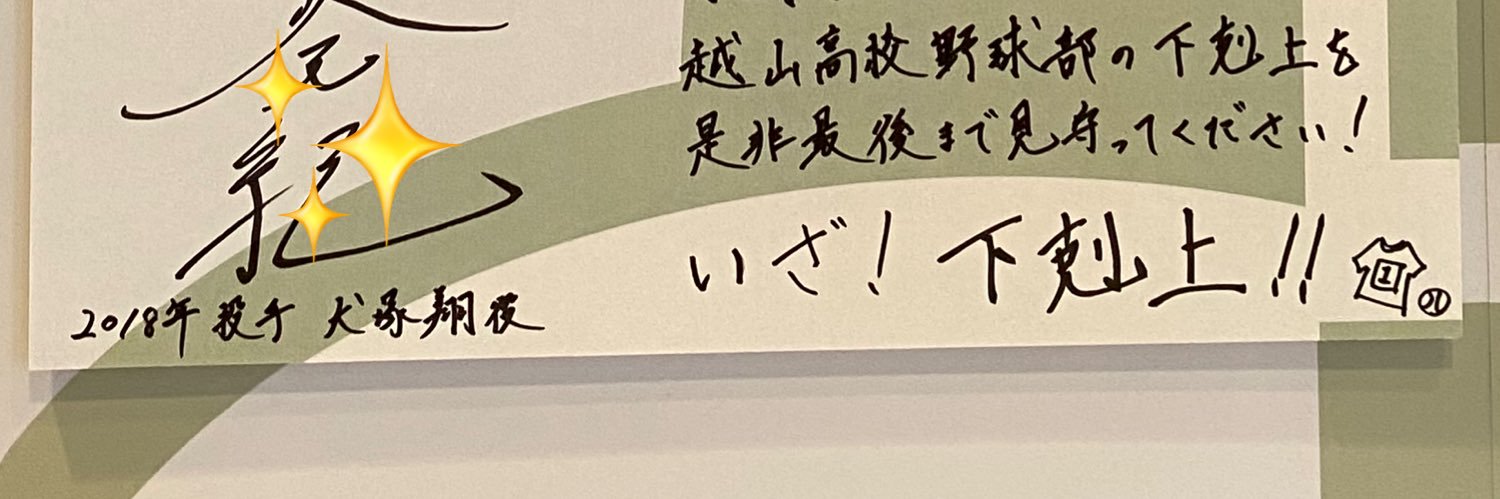 越山高校野球部の下剋上を
是非最後まで見守ってください！
いざ！下剋上!!
1
2018年 投手 犬塚翔役